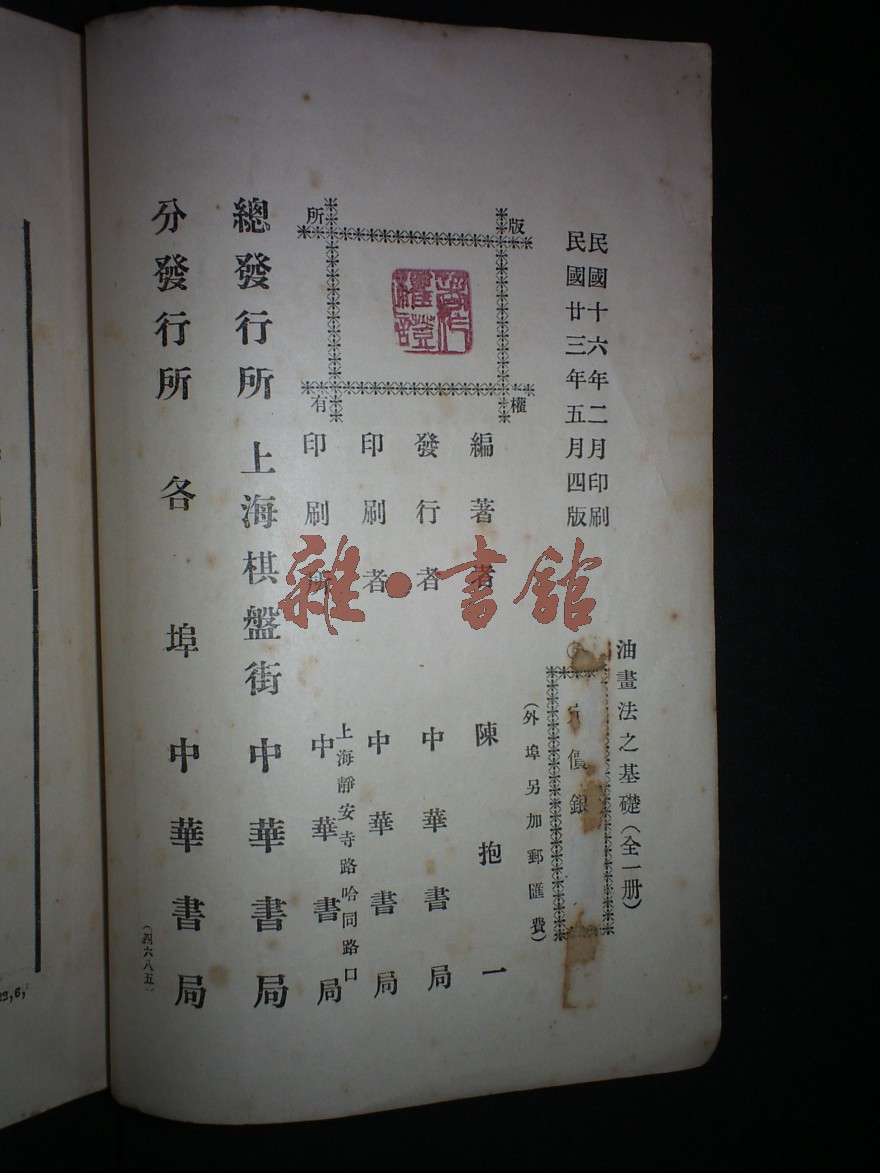 民國十六年二月印刷
民國廿三年五月四版
油畫法之基礎(全一册)
定價銀
(外埠另加郵匯費)
版權所有
著作權證
編著者 陳抱一
發行者 中華書局
印刷者 中華書局
上海靜安寺路哈同路口
印刷所 中華書局
總發行所 上海棋盤街 中華書局
分發行所 各埠 中華書局
(四六八五)
雜·書館